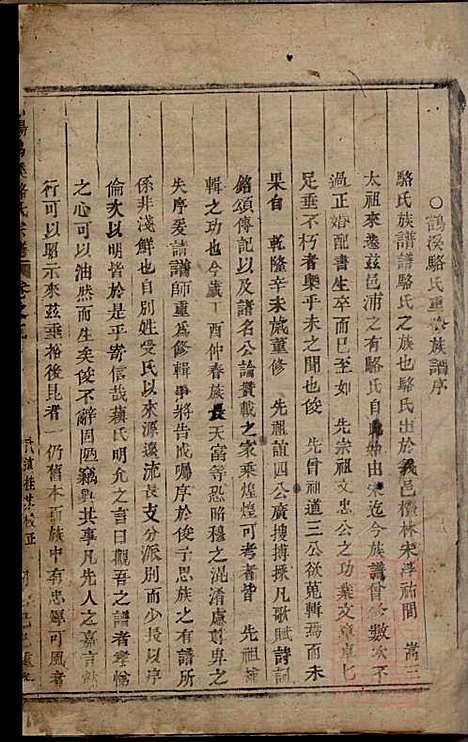 ○鶴溪駱氏重修族譜序
駱氏族譜譜駱氏之族也駱氏出於義邑櫃林宋淳祐間 萬三
太祖來遷茲邑浦之有駱氏自此始由宋迄今族譜曾修數次不
過正婚配書生卒而已至如 先宗祖文忠公之功業文章卓七
足垂不朽者槩乎未之聞也俊 先曾祖道三公欲蒐輯焉而未
果自 乾隆辛未歲董修 先祖誼四公廣搜摶採凡歌賦詩詞
銘頌傳記以及諸名公論贊載之家乘煌煌可考者皆 先祖
輯之功也今歲丁酉仲春族長天富等恐昭穆之混淆慮尊卑之
失序爰請譜師重為修輯爭將告成囑序於俊予思族之有譜所
係非淺鮮也自別姓受氏以來源遠流長支分派別而少長以序
倫次以明皆於是乎寄信哉蘇氏明允之言曰觀吾之譜者孝悌
之心可以油然而生矣俊不辭固陋竊與共事凡先人之嘉言
行可以昭示來茲垂裕後昆者一仍舊本而族中有忠厚可風者
駱氏宗譜 卷之